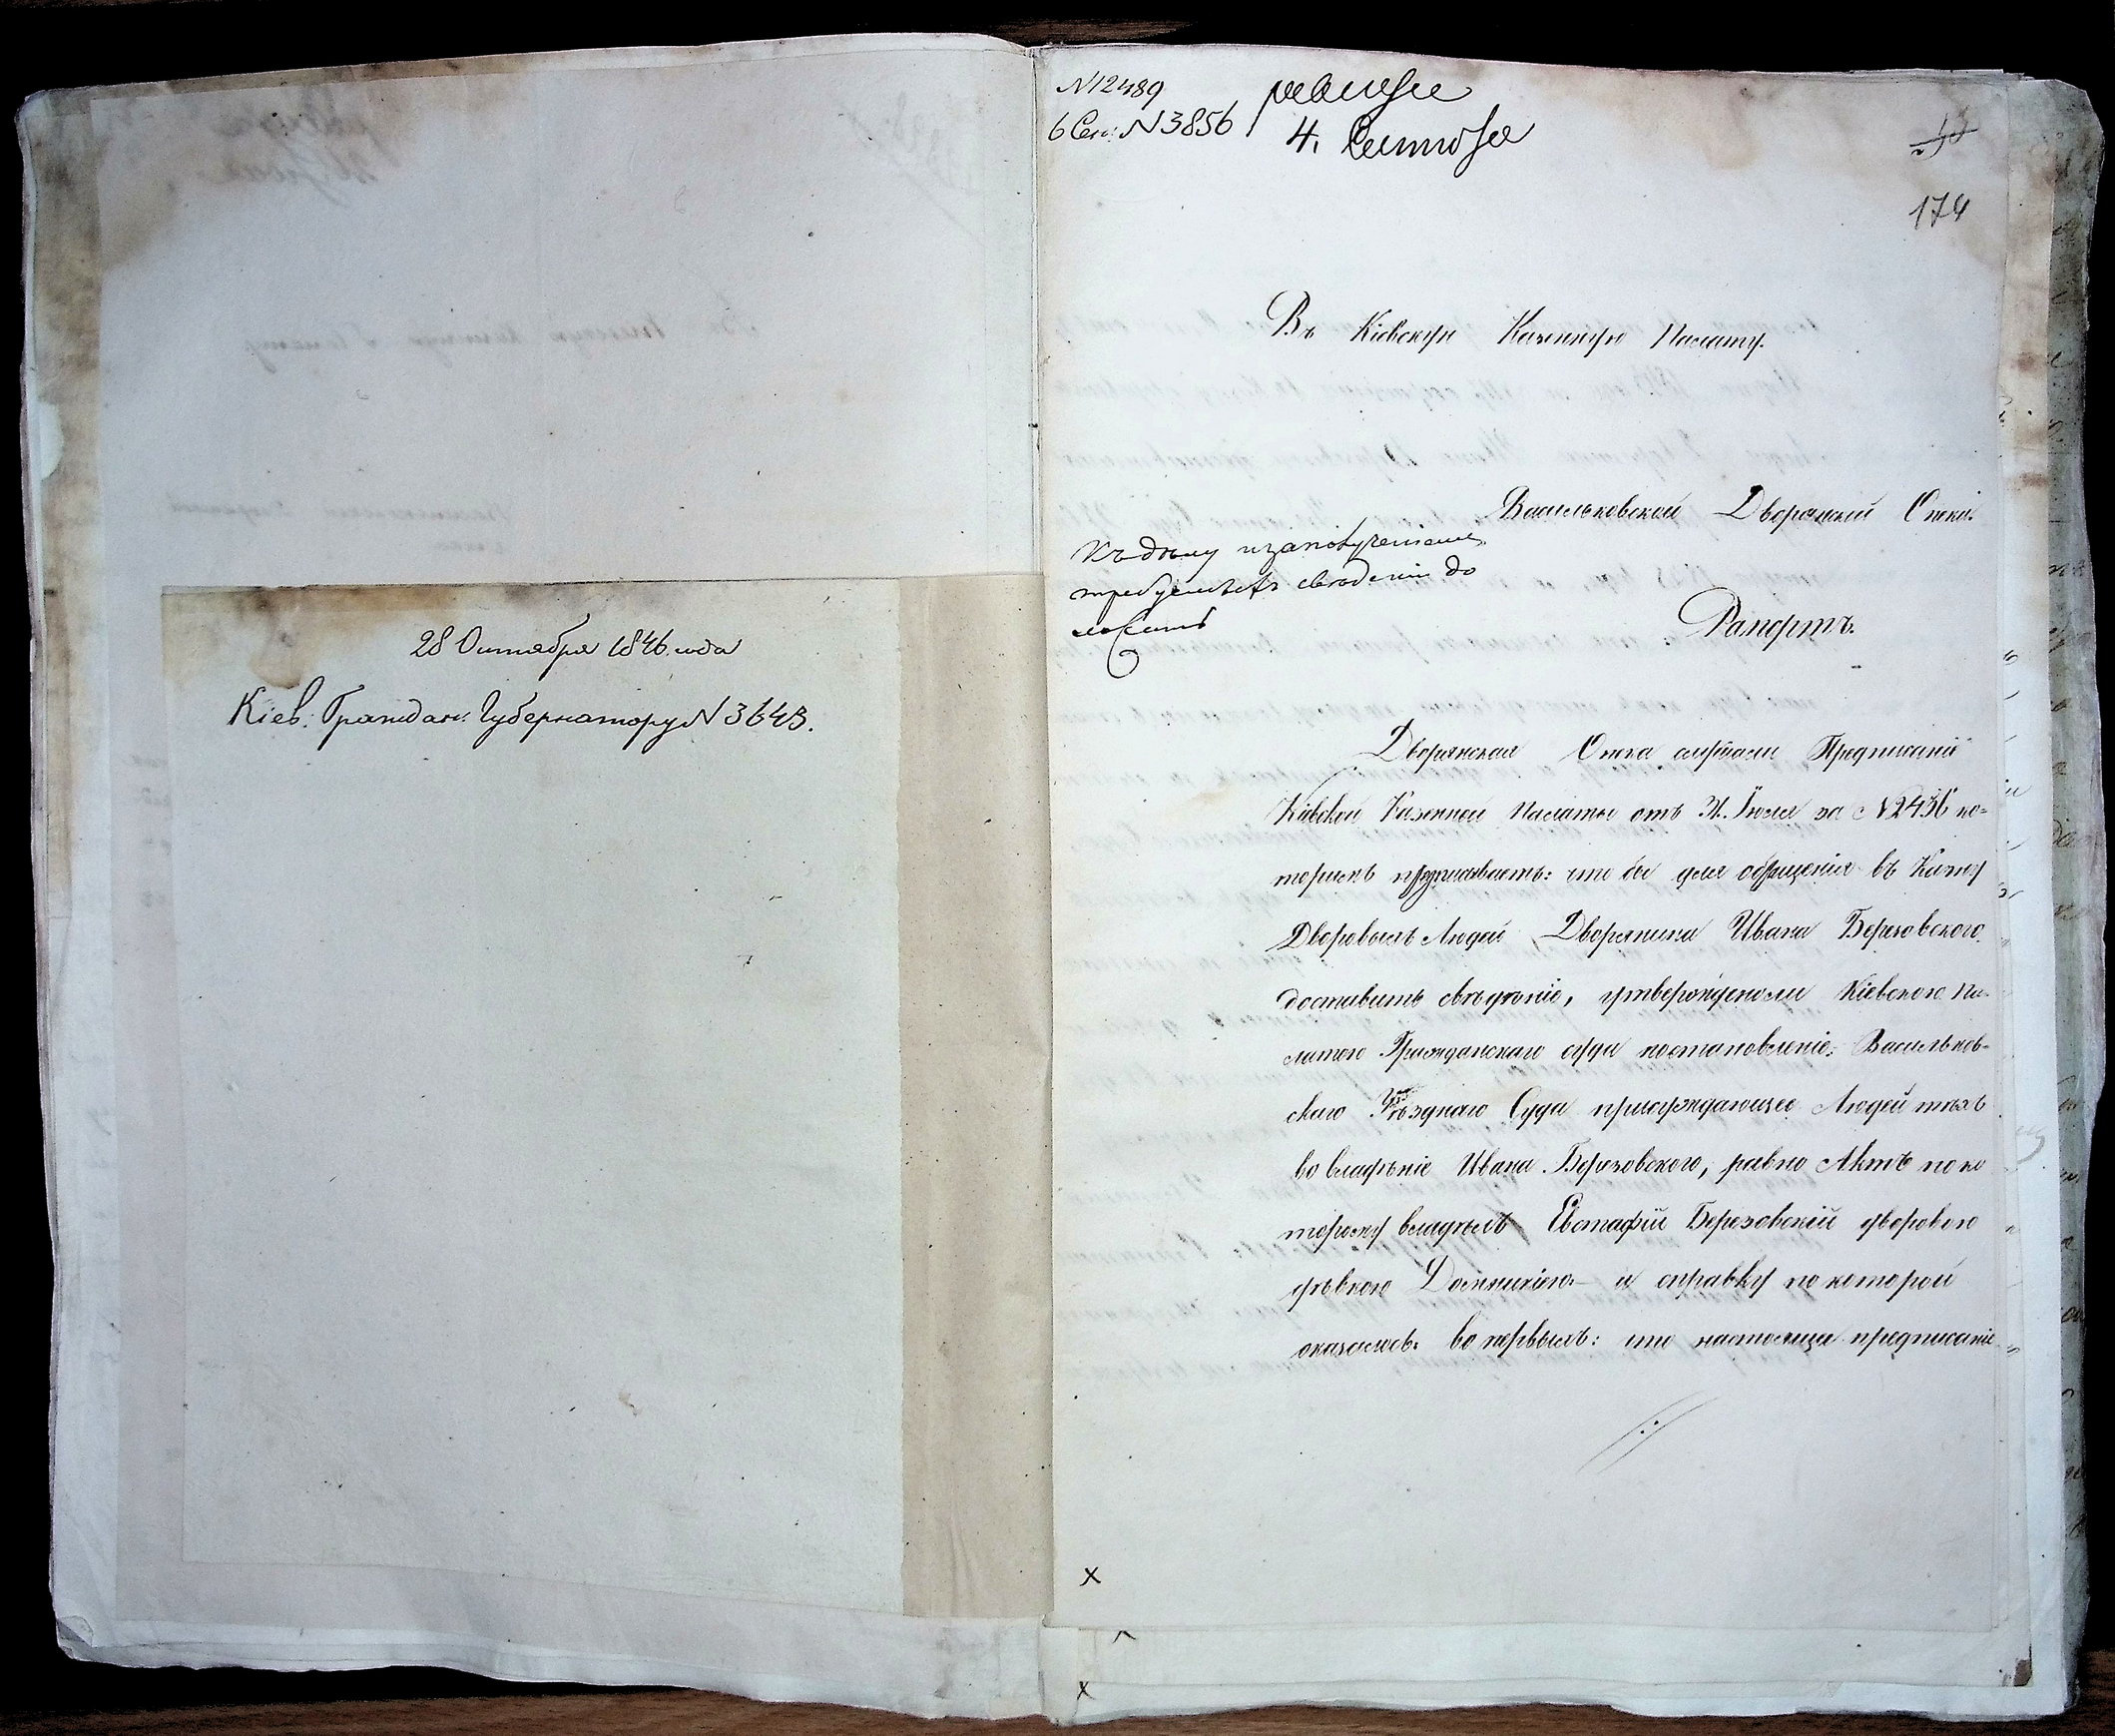 28 Октября 1846 года
Кіев. Граждан. Губернатору N 3643.
N 12489
6 Сен: N 3856
ревизіи
4. Сентября
174
Въ Кіевскую Казенную Палату.
Васильковской Дворянской Опеки
Къ дѣлу и заполученіемъ
требуемыхъ свѣденій до
ложить
Рапортъ.
Дворянская Опека слушали Предписаніе
Кіевской Казенной Палаты отъ 31. Іюля за N 2436 ко-
торымъ предписываетъ: что бы для обращенія въ Казну
Дворовыхъ Людей Дворянина Ивана Березовского
доставить свѣдѣніе, утвержденоли Кіевскою Па-
латою Гражданскаго суда постановленіе Васильков-
скаго Уѣзднаго Суда присуждающее Людей тѣхъ
во владѣніе Ивана Березовского, равно Актъ по ко
торому владѣлъ Евстафій Березовскій дворовою
дѣвкою и справку по которой
оказалось. во первыхъ: что настоящее предписаніе